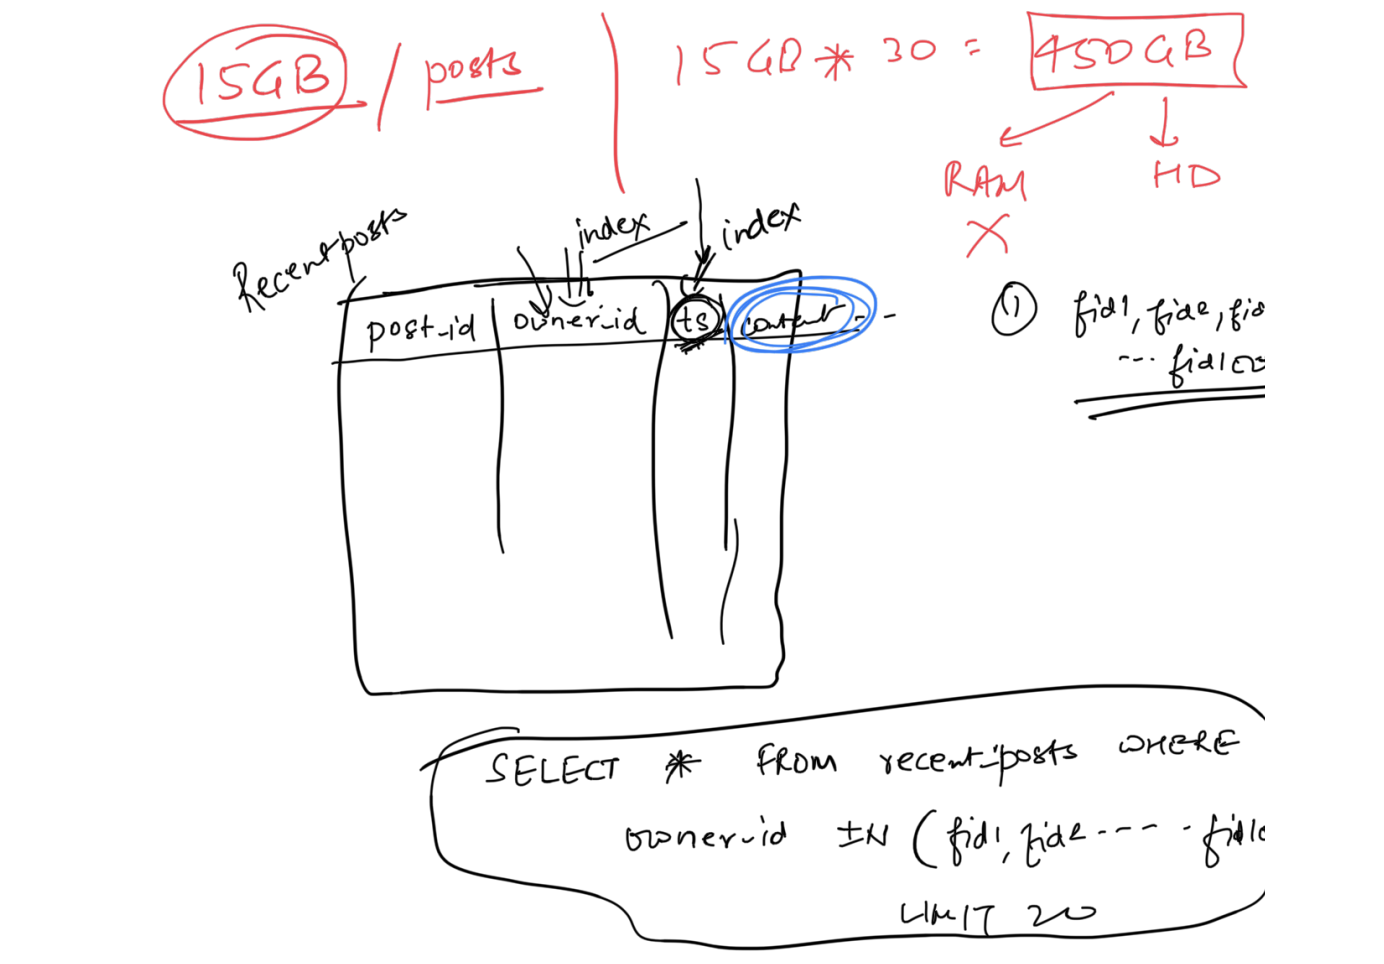 15GB / posts
15GB * 30 = 450GB
RAM
HD
X
Recent posts
index
index
post_id
owner_id
ts
content - -
① fid1, fid2, fid
--- fid100
SELECT * FROM recent_posts WHERE
owner_id IN (fid1, fid2 - - - - - fid10
LIMIT 20